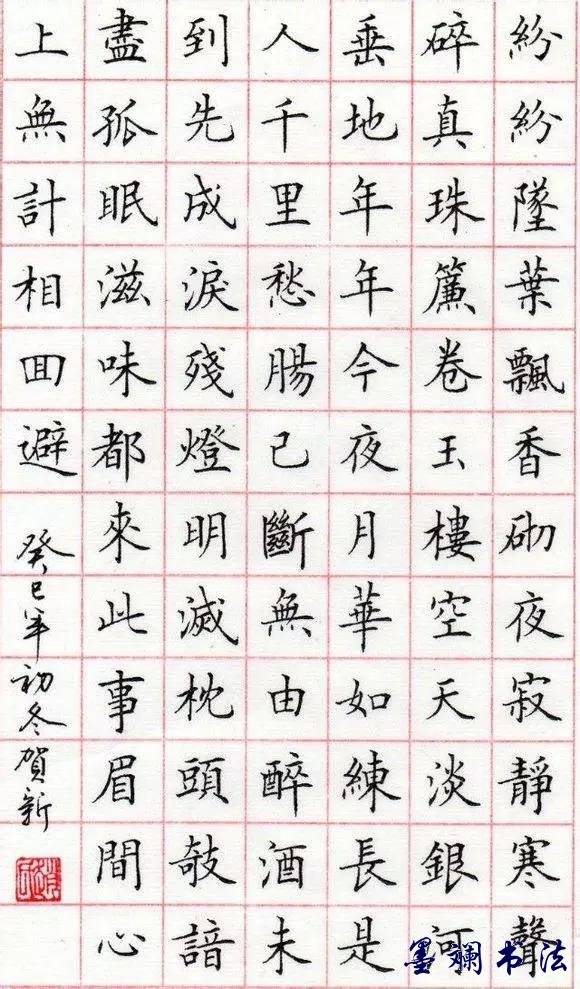 紛紛墜葉飄香砌夜寂靜寒聲
碎真珠簾卷玉樓空天淡銀河
垂地年年今夜月華如練長是
人千里愁腸已斷無由醉酒未
到先成淚殘燈明滅枕頭攲諳
盡孤眠滋味都來此事眉間心
上無計相囬避
癸巳年初冬賀新
墨斓书法